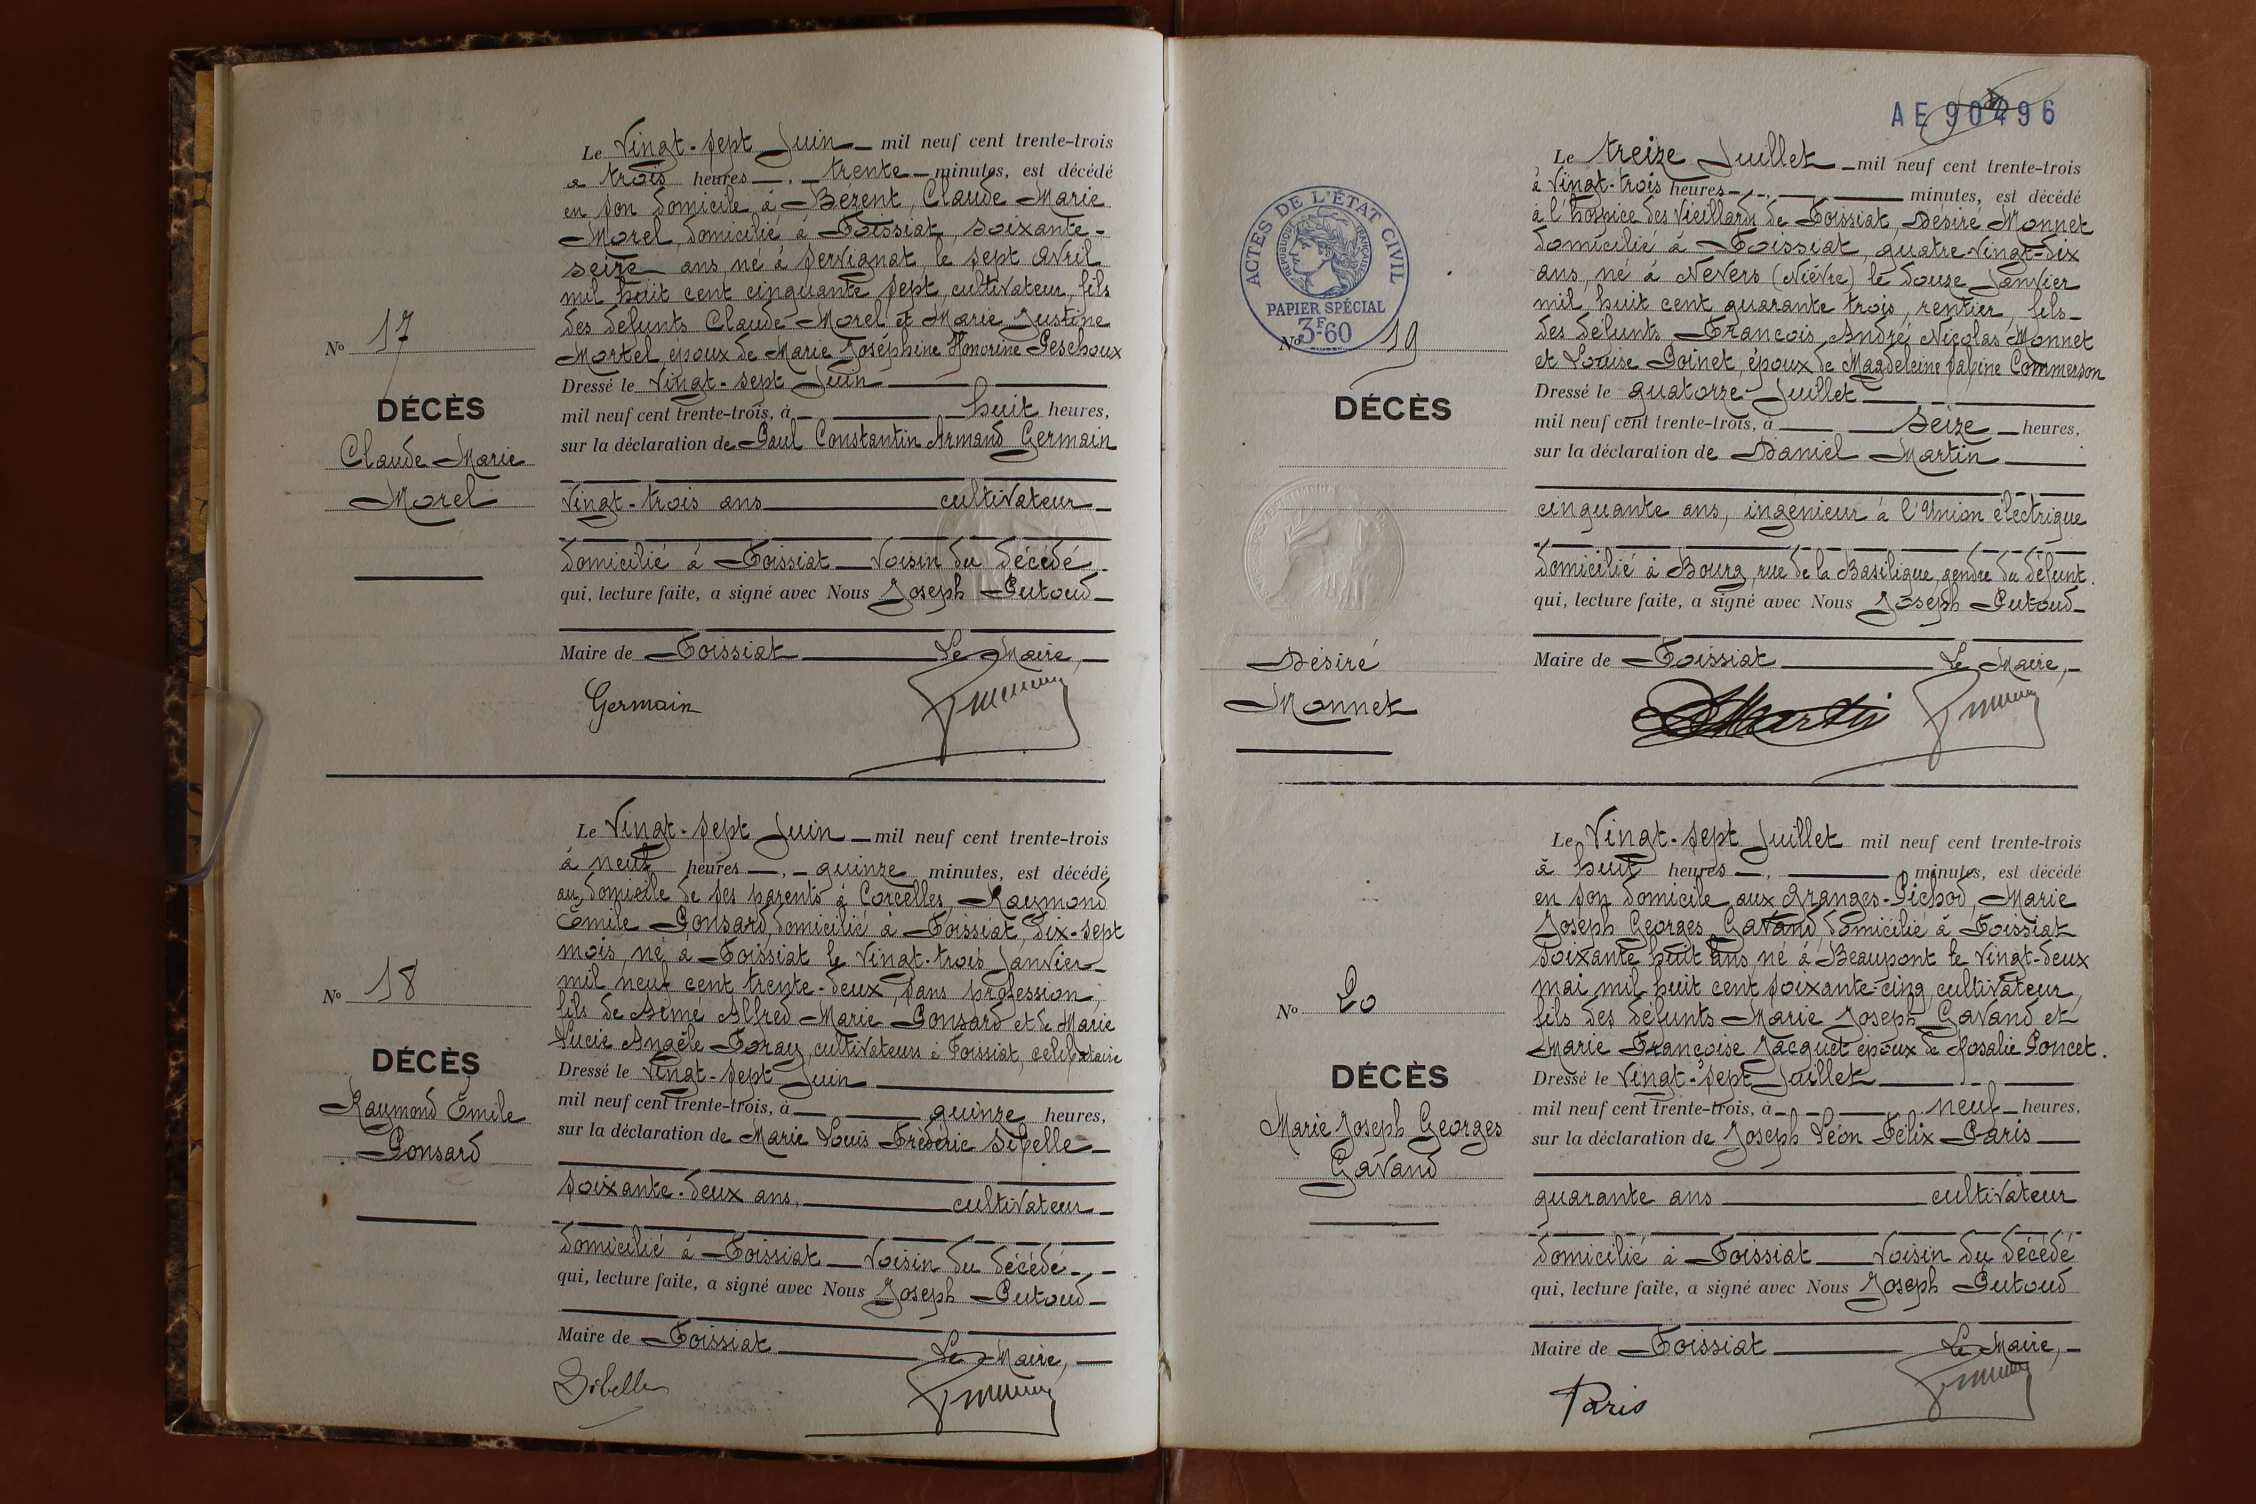 Le Vingt-sept Juin mil neuf cent trente-trois
a trois heures, trente minutes, est décédé
en son domicile à Bézent, Claude Marie
Morel, domicilié à Foissiat, soixante-
seize ans, né à Servignat, le sept avril
mil huit cent cinquante sept, cultivateur, fils
des défunts Claude Morel et Marie Justine
Mortel, époux de Marie Joséphine Honorine Peschoux
No 17
Dressé le Vingt-sept Juin
DÉCÈS
mil neuf cent trente-trois, à huit heures,
sur la déclaration de Paul Constantin Armand Germain
Claude Marie
Morel
Vingt-trois ans cultivateur
domicilié à Foissiat Voisin du décédé
qui, lecture faite, a signé avec Nous Joseph Putoud
Maire de Foissiat Le Maire,
Germain
Le Vingt-sept Juin mil neuf cent trente-trois
à neuf heures, quinze minutes, est décédé
au domicile de ses parents à Corcelles, Raymond
Émile Ponsard, domicilié à Foissiat, dix-sept
mois, né à Foissiat le Vingt-trois Janvier
mil neuf cent trente-deux, sans profession,
fils de Aimé Alfred Marie Ponsard et de Marie
Lucie Angèle Foray, cultivateurs à Foissiat, célibataire
No 18
Dressé le Vingt-sept Juin
DÉCÈS
mil neuf cent trente-trois, à quinze heures,
sur la déclaration de Marie Louis Frédéric Sibelle
Raymond Émile
Ponsard
soixante-deux ans, cultivateur
domicilié à Foissiat Voisin du décédé
qui, lecture faite, a signé avec Nous Joseph Putoud
Maire de Foissiat Le Maire,
Sibelle
AE 90496
Le treize Juillet mil neuf cent trente-trois
à Vingt-trois heures minutes, est décédé
à l'hospice des Vieillards de Foissiat, Désiré Monnet
domicilié à Foissiat, quatre-Vingt-dix
ans, né à Nevers (Nièvre) le douze Janvier
mil huit cent quarante trois, rentier, fils
des défunts François André Nicolas Monnet
et Louise Poinet, époux de Magdeleine Sabine Commerson
ACTES DE L'ÉTAT CIVIL
RÉPUBLIQUE FRANÇAISE
PAPIER SPÉCIAL
3F60
No 19
Dressé le quatorze Juillet
DÉCÈS
mil neuf cent trente-trois, à seize heures,
sur la déclaration de Daniel Martin
cinquante ans, ingénieur à l'Union électrique
domicilié à Bourg, rue de la Basilique, gendre du défunt.
qui, lecture faite, a signé avec Nous Joseph Putoud
Désiré
Monnet
Maire de Foissiat Le Maire,
DMartin
Le Vingt-sept Juillet mil neuf cent trente-trois
à huit heures, minutes, est décédé
en son domicile aux Granges-Pichod, Marie
Joseph Georges Gavand, domicilié à Foissiat
soixante huit ans, né à Beaupont le Vingt-deux
mai mil huit cent soixante-cinq, cultivateur,
fils des défunts Marie Joseph Gavand et
Marie Françoise Jacquet époux de Rosalie Poncet.
No 20
Dressé le Vingt-sept Juillet
DÉCÈS
mil neuf cent trente-trois, à neuf heures,
sur la déclaration de Joseph Léon Félix Paris
Marie Joseph Georges
Gavand
quarante ans cultivateur
domicilié à Foissiat Voisin du décédé
qui, lecture faite, a signé avec Nous Joseph Putoud
Maire de Foissiat Le Maire,
Paris